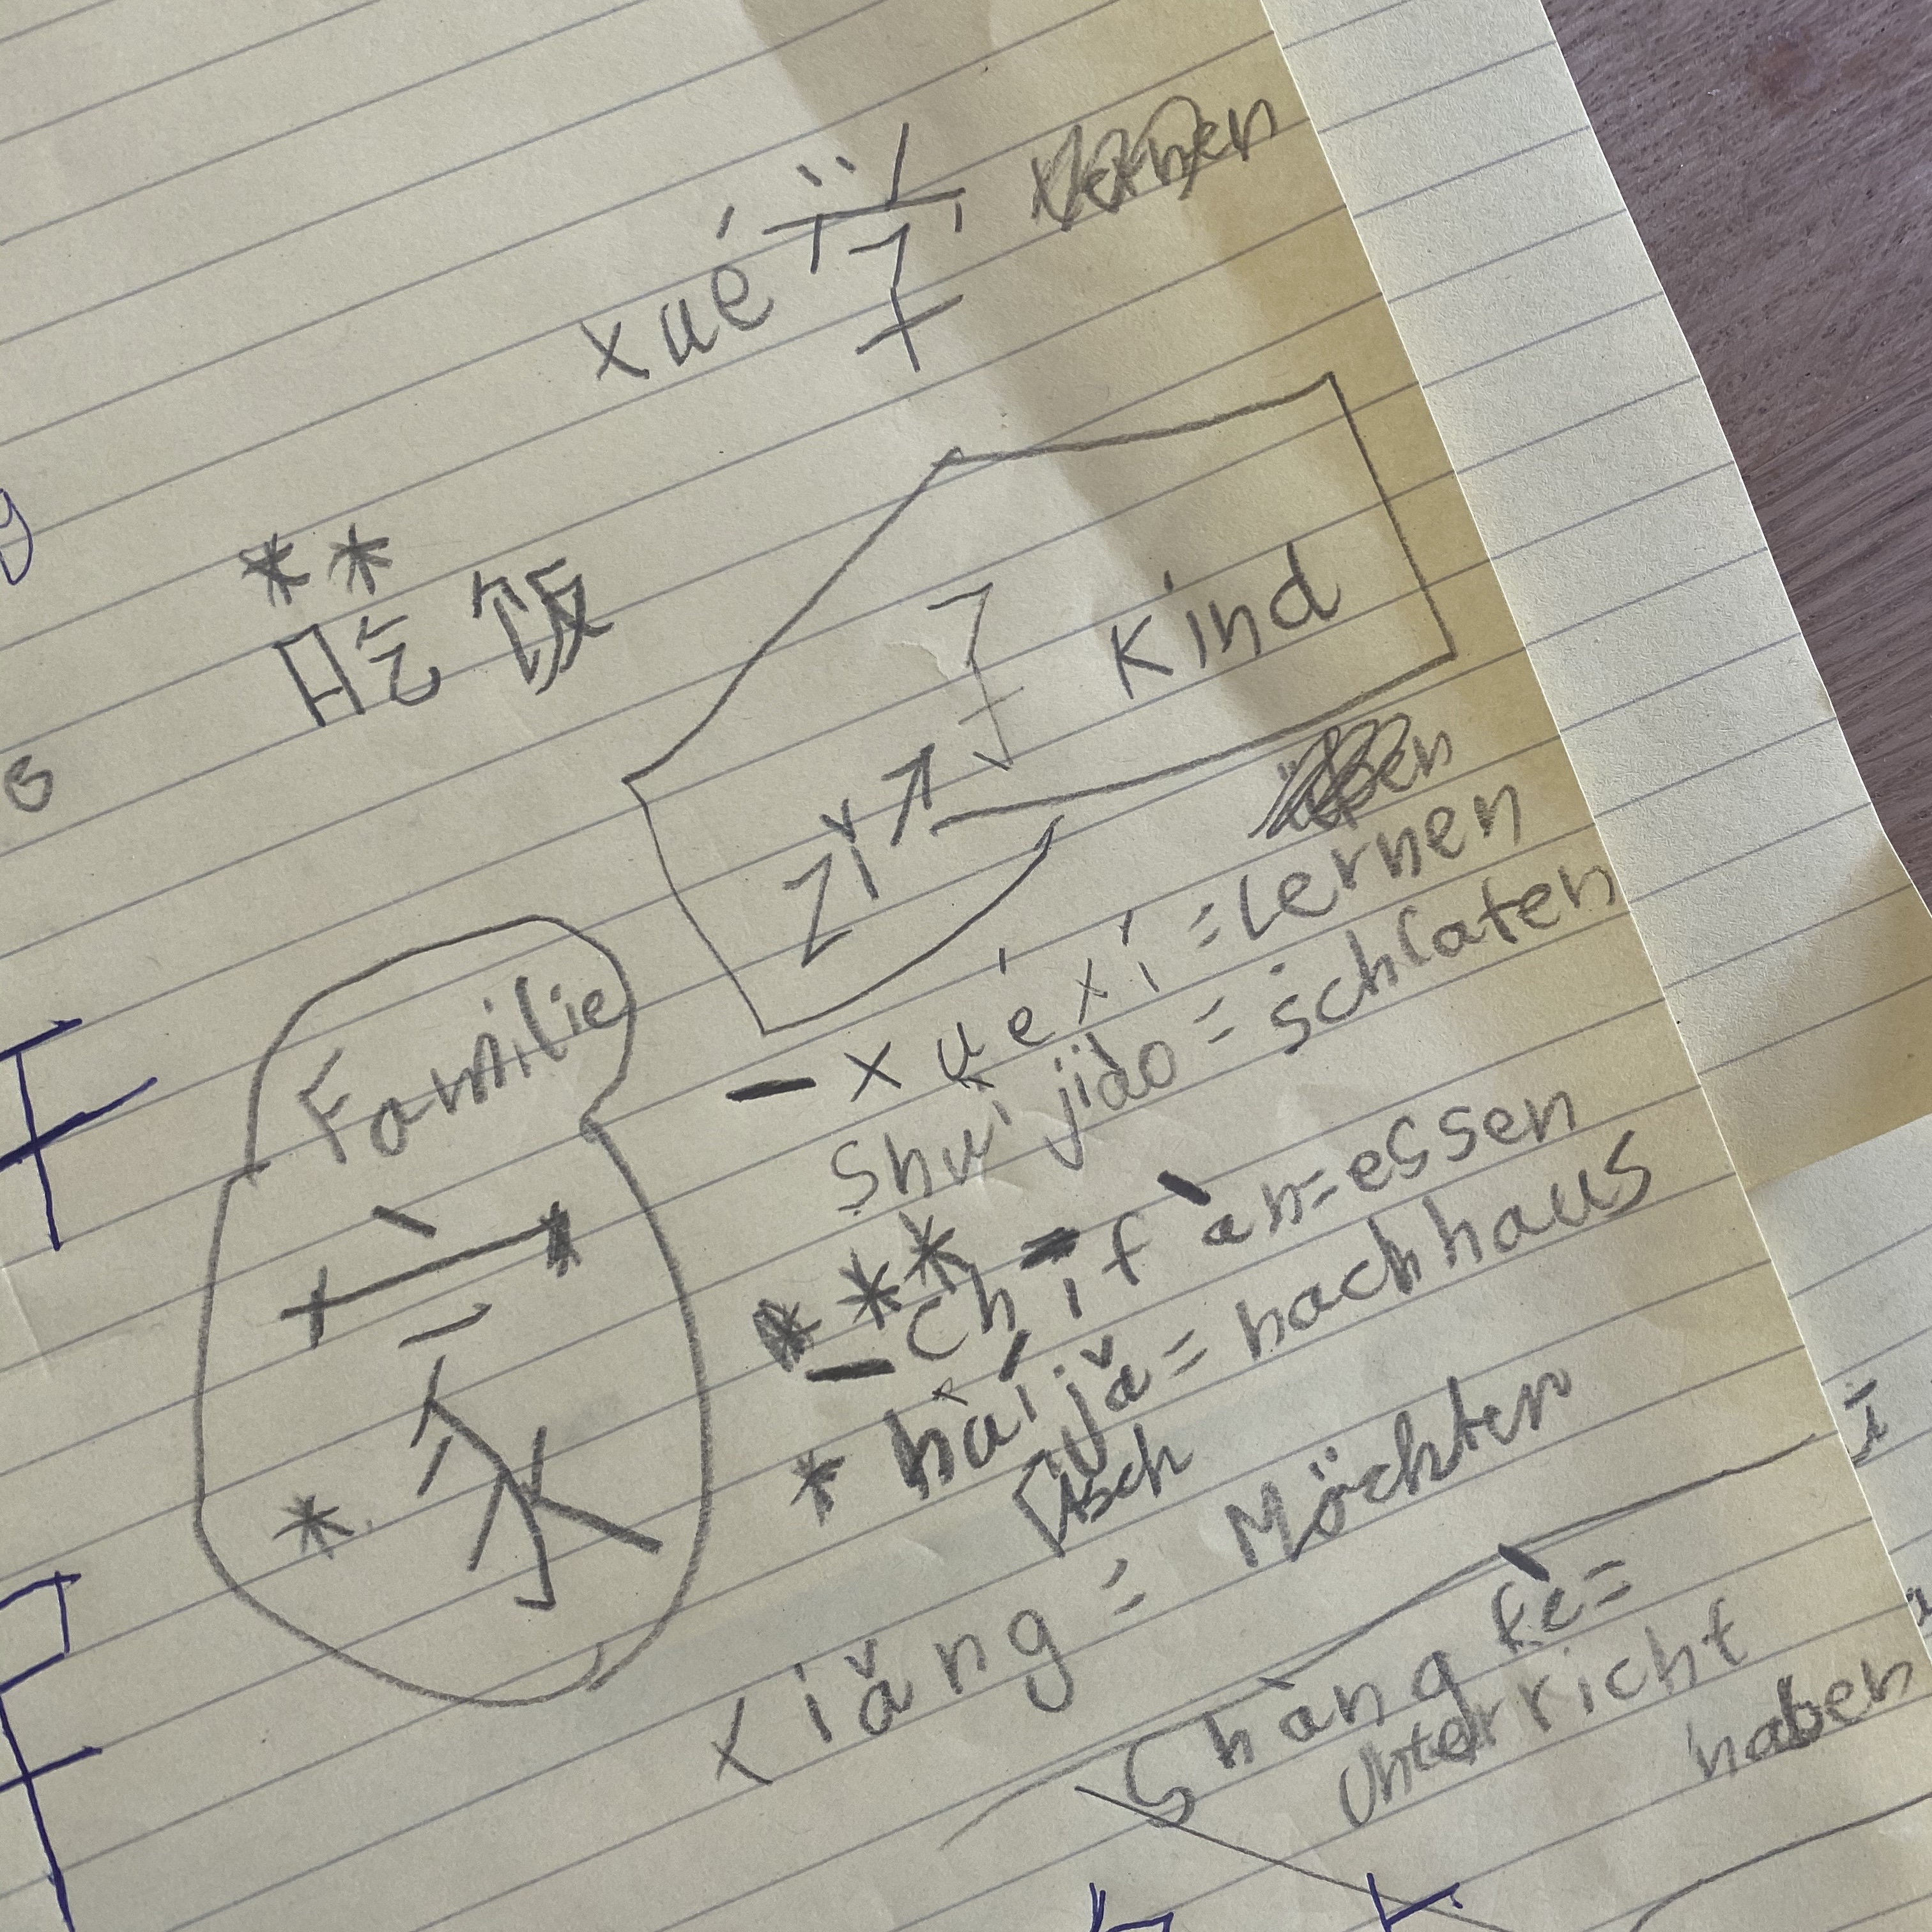 xué 学
** 
吃饭
子 Kind
zǐ
- xuéxí = lernen
Shuì jiào = schlafen
*** - Chīfàn = essen
* huí jiā = nach haus
Familie
家
*
xiǎng = Möchten
Shàng kè =
Unterricht
haben